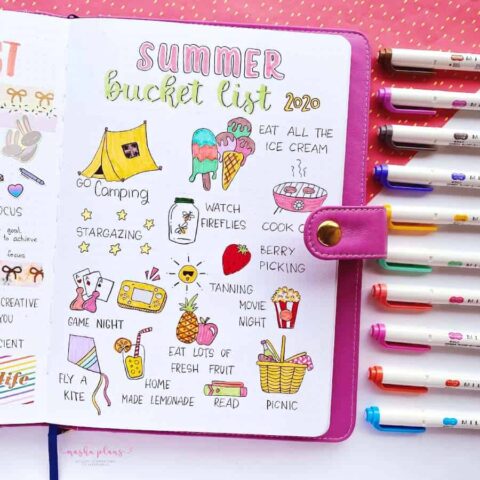 SUMMER
bucket list 2020
EAT ALL THE
ICE CREAM
GO Camping
WATCH
FIREFLIES
COOK
STARGAZING
BERRY
PICKING
TANNING
MOVIE
NIGHT
GAME NIGHT
EAT LOTS OF
FRESH FRUIT
FLY A
KITE
HOME
MADE LEMONADE
READ
PICNIC
ST
FOCUS
goal
to achieve
focus
CREATIVE
YOU
life
masha plans